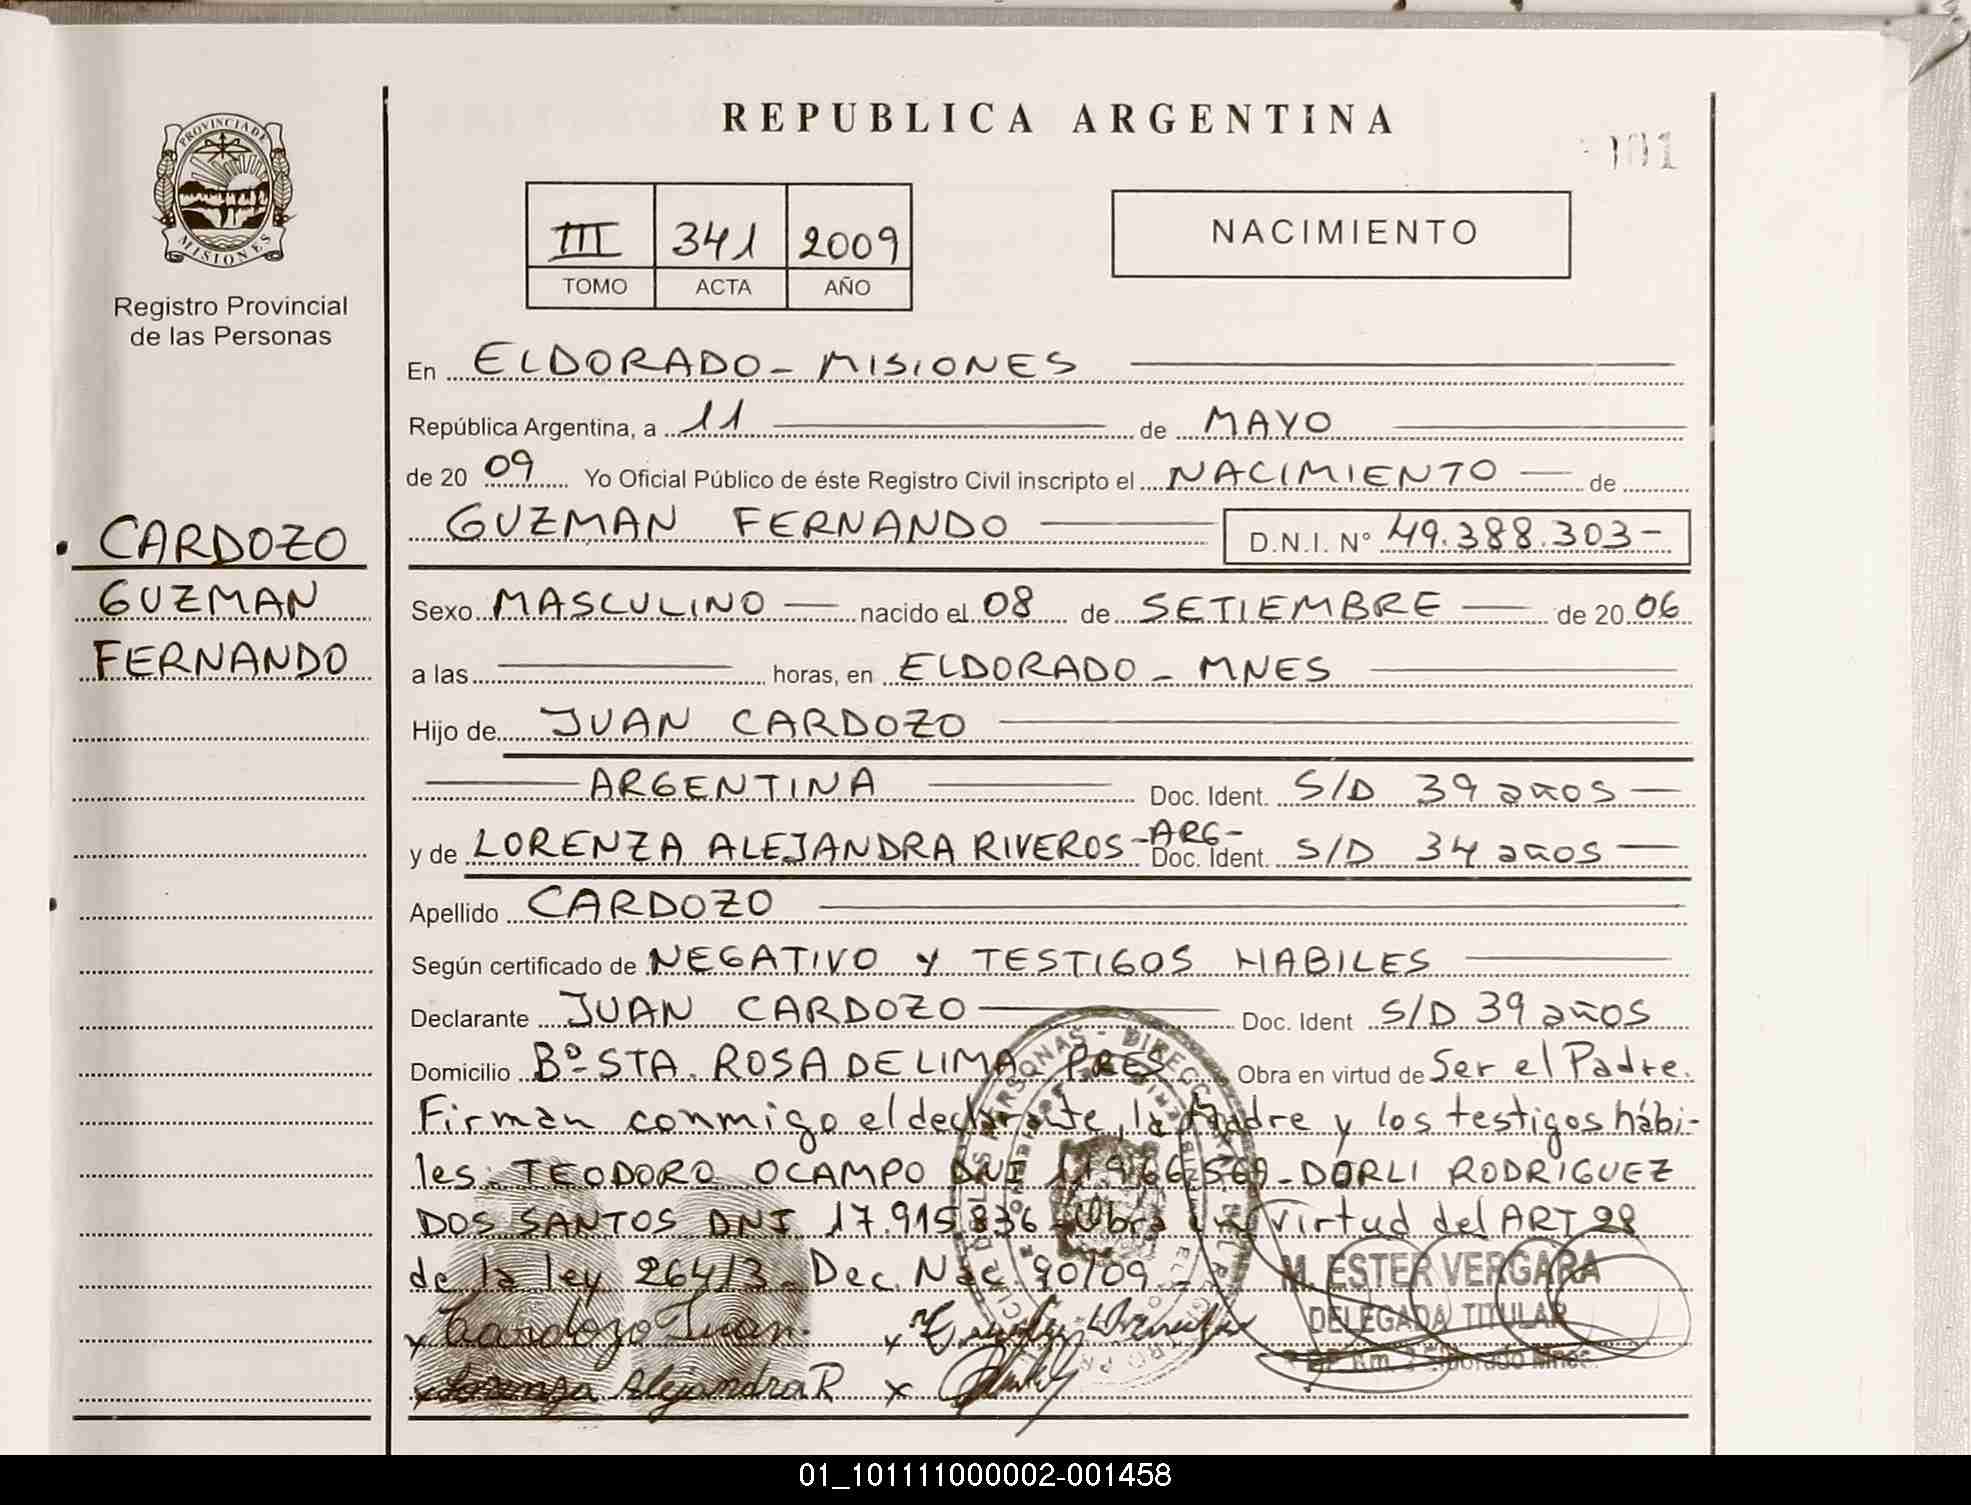 REPUBLICA ARGENTINA
101
PROVINCIA DE
MISIONES
Registro Provincial
de las Personas
III 341 2009
TOMO ACTA AÑO
NACIMIENTO
En ELDORADO - MISIONES
República Argentina, a 11 de MAYO
de 20 09 Yo Oficial Público de éste Registro Civil inscripto el NACIMIENTO de
GUZMAN FERNANDO D.N.I. N° 49.388.303-
CARDOZO
GUZMAN
FERNANDO
Sexo MASCULINO nacido el 08 de SETIEMBRE de 20 06
a las horas, en ELDORADO - MNES
Hijo de JUAN CARDOZO
ARGENTINA Doc. Ident. S/D 39 años
y de LORENZA ALEJANDRA RIVEROS - ARG - Doc. Ident. S/D 34 años
Apellido CARDOZO
Según certificado de NEGATIVO Y TESTIGOS HABILES
Declarante JUAN CARDOZO Doc. Ident S/D 39 años
Domicilio Bº STA. ROSA DE LIMA - PRES Obra en virtud de Ser el Padre.
Firman conmigo el declarante, la Madre y los testigos hábi-
les: TEODORO OCAMPO DNI - DORLI RODRIGUEZ
DOS SANTOS DNI 17.915.836 - Obra en virtud del ART 28
de la ley 26413 - Dec. Nac. 90/09 -
M. ESTER VERGARA
DELEGADA TITULAR
Km. 3 Eldorado Mnes.
x Cardozo Juan. x
x Lorenza Alejandra R x
01_101111000002-001458